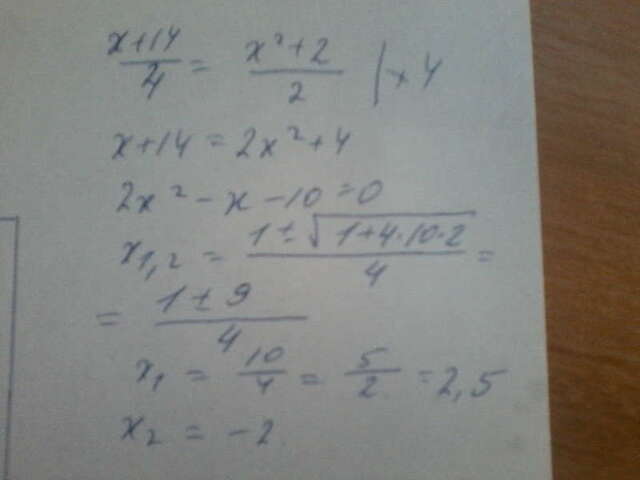 x+14/4 = x²+2/2 | × 4
x+14 = 2x²+4
2x² - x - 10 = 0
x1,2 = 1±√1+4·10·2/4 =
= 1±9/4
x1 = 10/4 = 5/2 = 2,5
x2 = -2